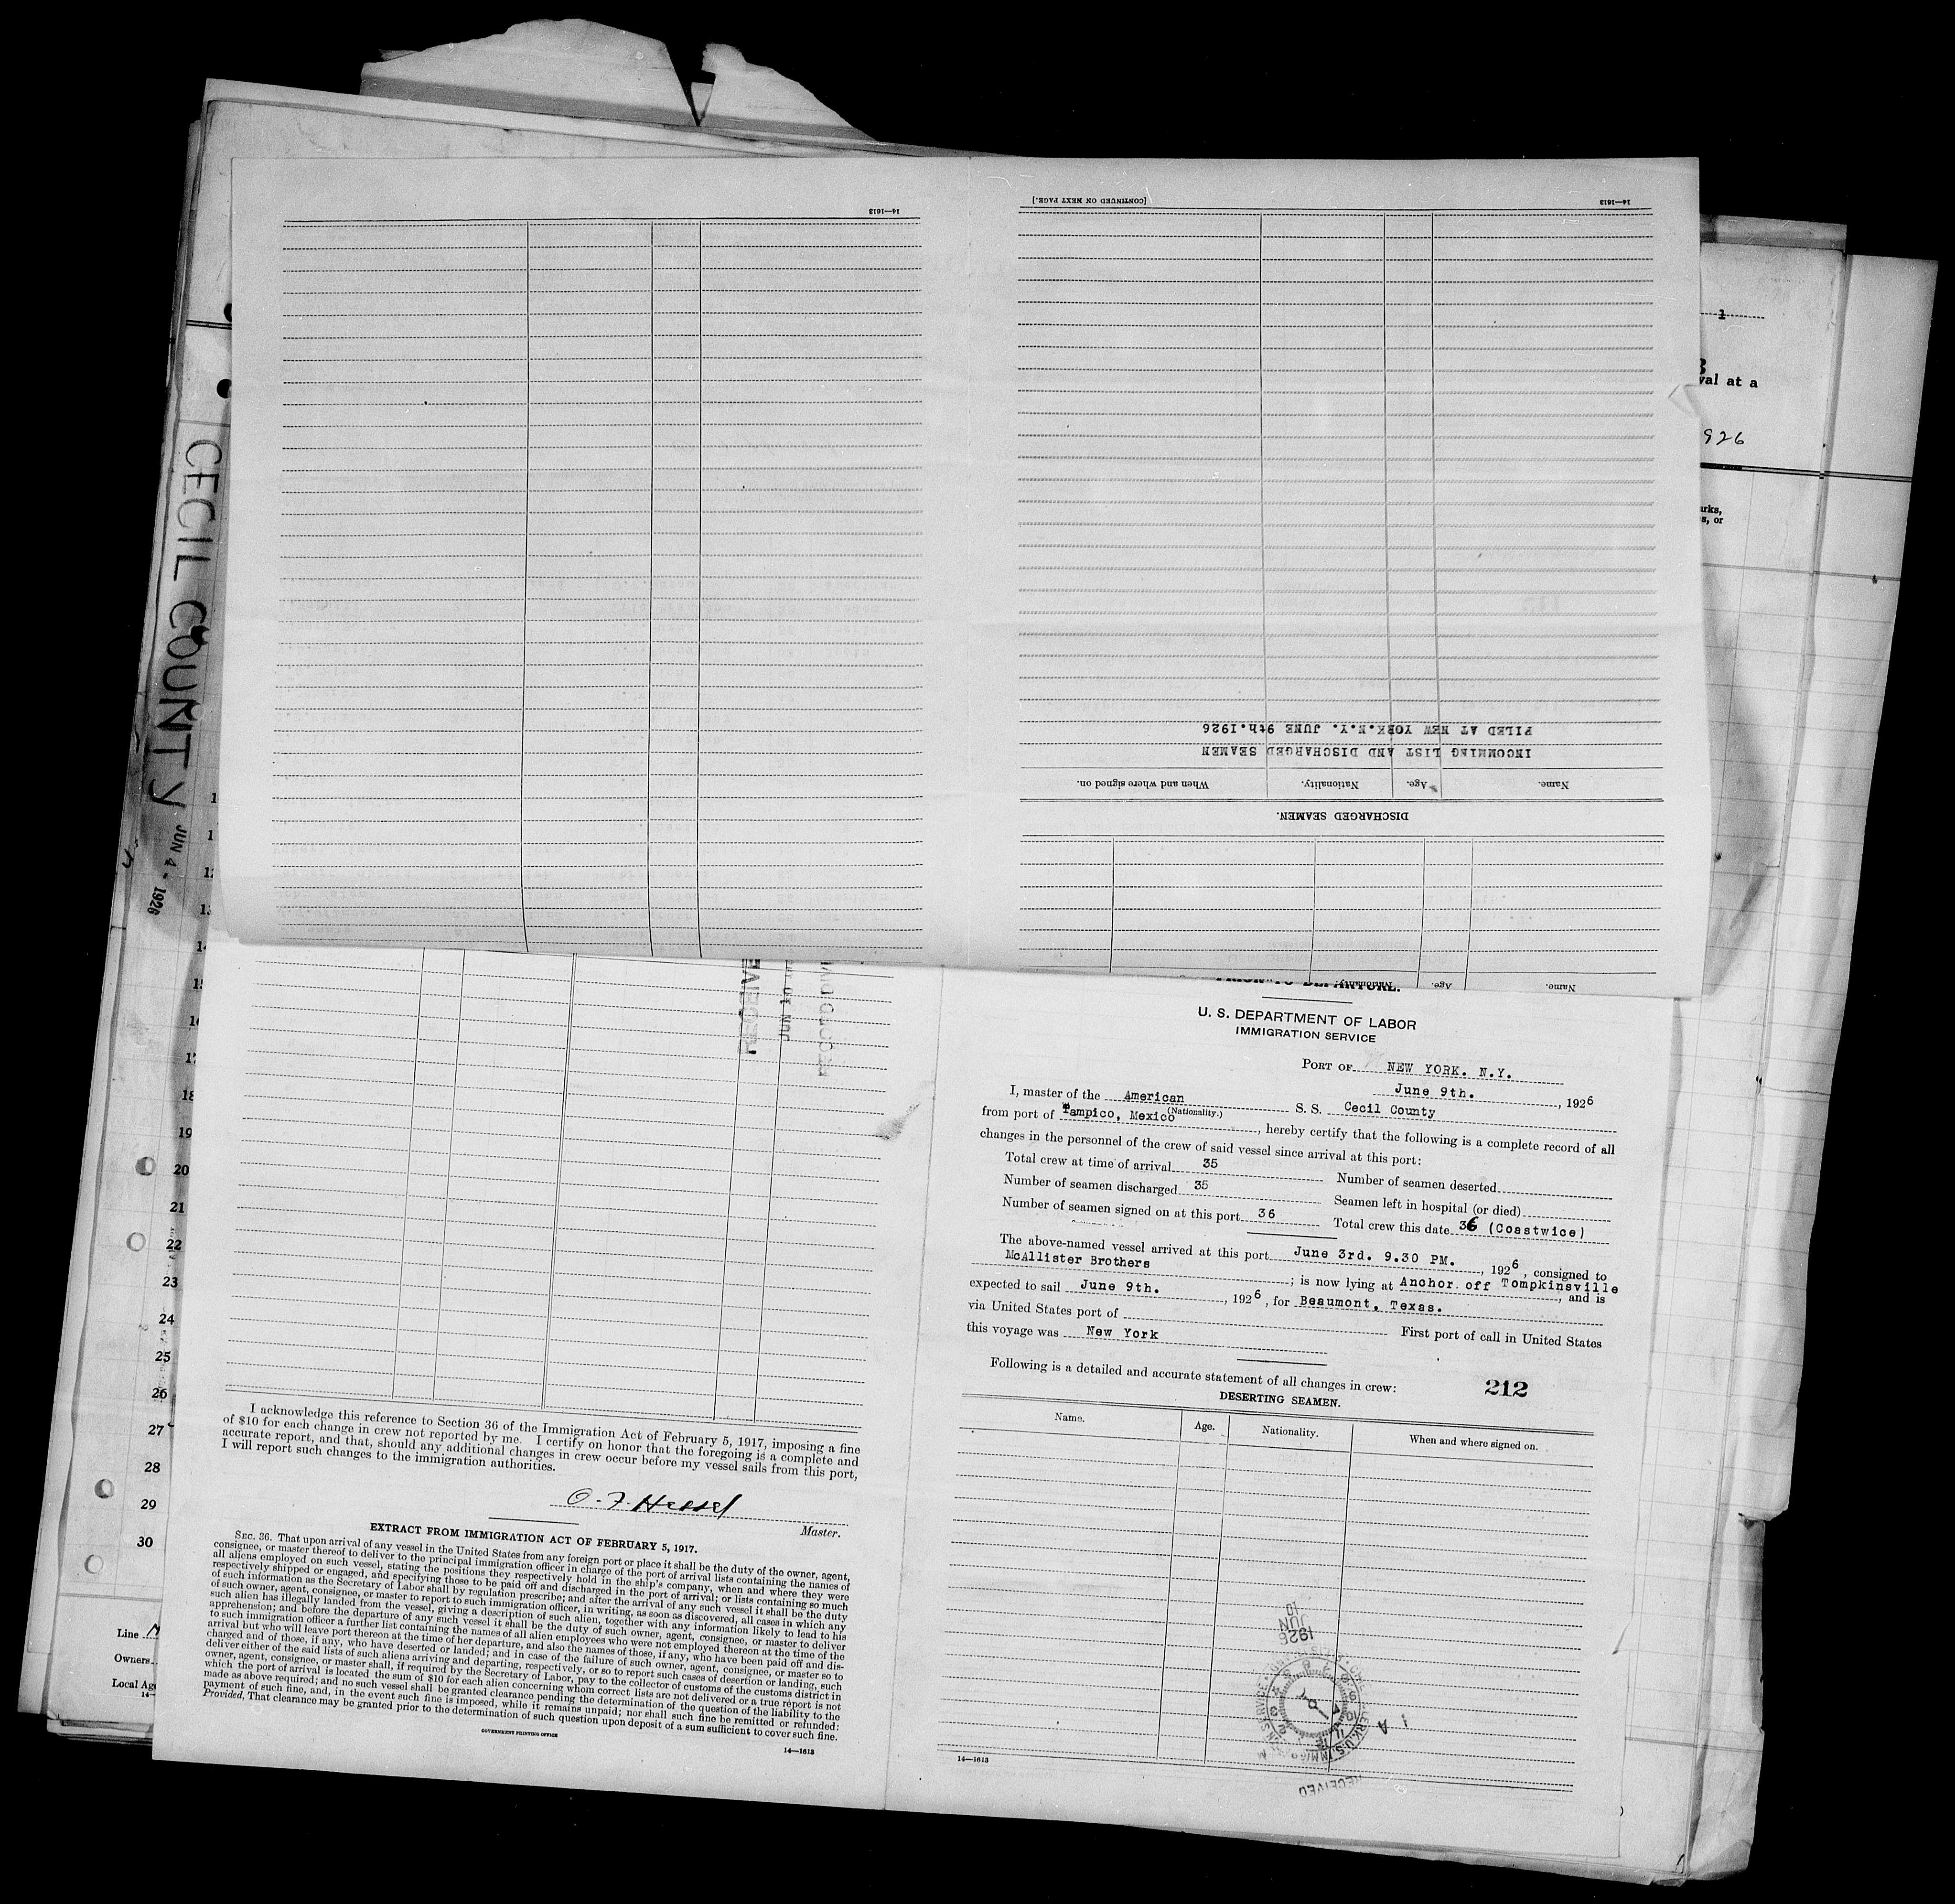 14—1613
[CONTINUED ON NEXT PAGE.]
14—1613
FILED AT NEW YORK.N.Y. JUNE 9th.1926
INCOMMING LIST AND DISCHARGED SEAMEN
Name.
Age.
Nationality.
When and where signed on.
DISCHARGED SEAMEN.
Name
Age.
Nationality.
1
val at a
926
s, or
CECIL COUNTY
JUN 4 - 1926
PRIOR TO DEPARTURE.
U. S. DEPARTMENT OF LABOR
IMMIGRATION SERVICE
PORT OF NEW YORK. N.Y.
June 9th. , 1926
I, master of the American S. S. Cecil County
(Nationality.)
from port of Tampico, Mexico , hereby certify that the following is a complete record of all
changes in the personnel of the crew of said vessel since arrival at this port:
Total crew at time of arrival 35 Number of seamen deserted
Number of seamen discharged 35 Seamen left in hospital (or died)
Number of seamen signed on at this port 36 Total crew this date 36 (Coastwice)
The above-named vessel arrived at this port June 3rd. 9.30 PM. , 1926 , consigned to
McAllister Brothers ; is now lying at Anchor. off Tompkinsville , and is
expected to sail June 9th. , 1926 , for Beaumont, Texas.
via United States port of First port of call in United States
this voyage was New York
Following is a detailed and accurate statement of all changes in crew:
212
DESERTING SEAMEN.
Name. Age. Nationality. When and where signed on.
1926
JUN
10
RECEIVED
14—1613
12
18
19
20
21
22
23
24
25
26
27
28
29
30
Line
Owners
Local Ag
I acknowledge this reference to Section 36 of the Immigration Act of February 5, 1917, imposing a fine
of $10 for each change in crew not reported by me. I certify on honor that the foregoing is a complete and
accurate report, and that, should any additional changes in crew occur before my vessel sails from this port,
I will report such changes to the immigration authorities.
O. F. Hessel
Master.
EXTRACT FROM IMMIGRATION ACT OF FEBRUARY 5, 1917.
SEC. 36. That upon arrival of any vessel in the United States from any foreign port or place it shall be the duty of the owner, agent,
consignee, or master thereof to deliver to the principal immigration officer in charge of the port of arrival lists containing the names of
all aliens employed on such vessel, stating the positions they respectively hold in the ship's company, when and where they were
respectively shipped or engaged, and specifying those to be paid off and discharged in the port of arrival; or lists containing so much
of such information as the Secretary of Labor shall by regulation prescribe; and after the arrival of any such vessel it shall be the duty
of such owner, agent, consignee, or master to report to such immigration officer, in writing, as soon as discovered, all cases in which any
such alien has illegally landed from the vessel, giving a description of such alien, together with any information likely to lead to his
apprehension; and before the departure of any such vessel it shall be the duty of such owner, agent, consignee, or master to deliver
to such immigration officer a further list containing the names of all alien employees who were not employed thereon at the time of the
arrival but who will leave port thereon at the time of her departure, and also the names of those, if any, who have been paid off and dis-
charged and of those, if any, who have deserted or landed; and in case of the failure of such owner, agent, consignee, or master so to
deliver either of the said lists of such aliens arriving and departing, respectively, or so to report such cases of desertion or landing, such
owner, agent, consignee, or master shall, if required by the Secretary of Labor, pay to the collector of customs of the customs district in
which the port of arrival is located the sum of $10 for each alien concerning whom correct lists are not delivered or a true report is not
made as above required; and no such vessel shall be granted clearance pending the determination of the question of the liability to the
payment of such fine, and, in the event such fine is imposed, while it remains unpaid; nor shall such fine be remitted or refunded:
Provided, That clearance may be granted prior to the determination of such question upon deposit of a sum sufficient to cover such fine.
GOVERNMENT PRINTING OFFICE
14—1613